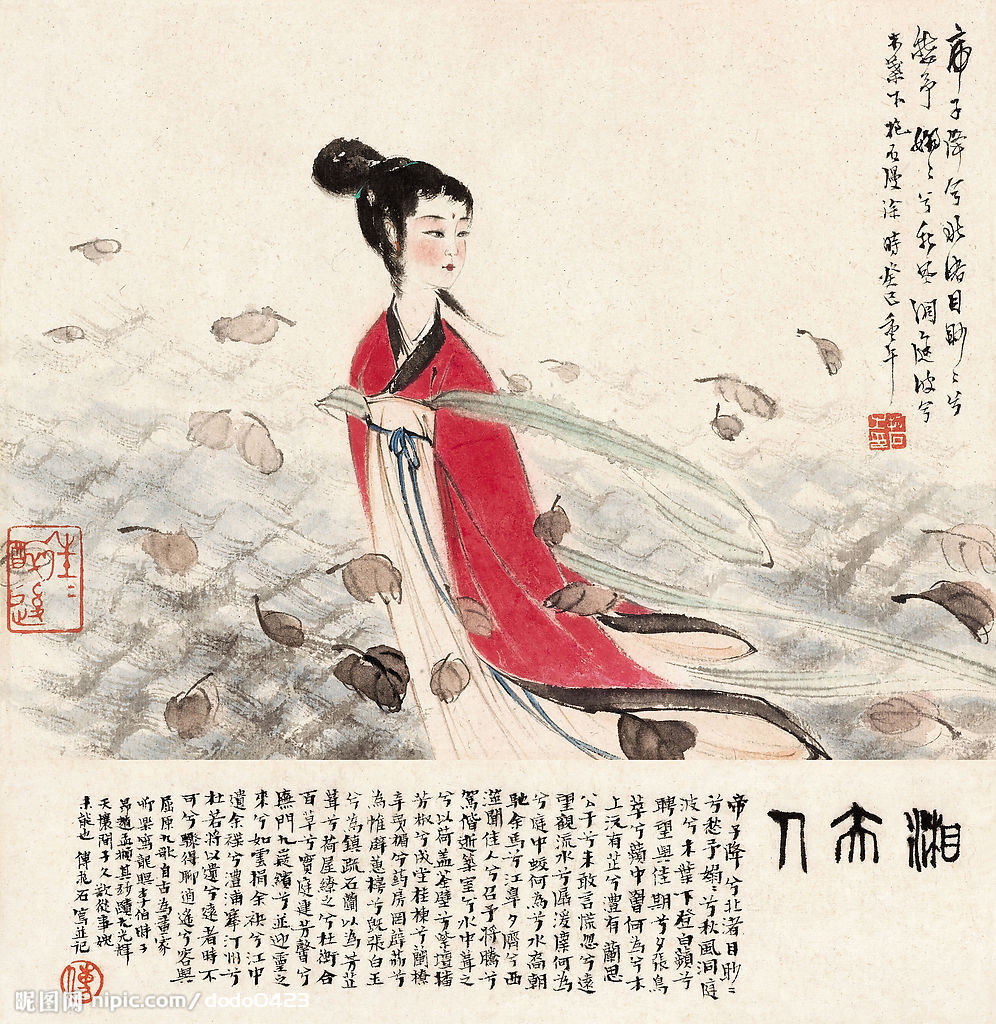 帝子降兮北渚目眇〻兮
愁予嫋〻兮秋風洞庭波兮
木葉下 抱石漫涂時癸巳重午
往往醉後
湘夫人
帝子降兮北渚目眇〻
兮愁予嫋〻兮秋風洞庭
波兮木葉下登白蘋兮
騁望與佳期兮夕張鳥
萃兮蘋中罾何為兮木
上沅有芷兮澧有蘭思
公子兮未敢言慌忽兮遠
望觀流水兮潺湲麋何為
兮庭中蛟何為兮水裔朝
馳余馬兮江皋夕濟兮西
澨聞佳人兮召予將騰兮
駕偕逝築室兮水中葺之
兮以荷蓋荃壁兮紫壇播
芳椒兮成堂桂棟兮蘭橑
辛夷楣兮葯房罔薜荔兮
為帷擗蕙櫋兮既張白玉
兮為鎮疏石蘭以為芳芷
葺兮荷屋繚之兮杜衡合
百草兮實庭建芳馨兮
廡門九嶷繽兮並迎靈之
來兮如雲捐余袂兮江中
遺余褋兮澧浦搴汀洲兮
杜若將以遺兮遠者時不
可兮驟得聊逍遙兮容與
屈原九歌自古為畫家
所樂寫龍眠李伯時子
昂趙孟頫其妙蹟尤光輝
天壤間予久欲從事
未能也 傅抱石寫並記
傅
昵图网 nipic.com/dodo0423